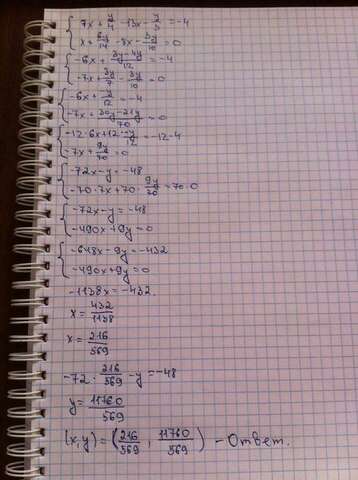 7x + y/4 - 13x - y/3 = -4
x + 6y/14 - 8x - 3y/10 = 0
-6x + 3y-4y/12 = -4
-7x + 3y/7 - 3y/10 = 0
-6x + -y/12 = -4
-7x + 30y-21y/70 = 0
-12·6x+12·-y/12 = -12·4
-7x + 9y/70 = 0
-72x-y = -48
-70·7x+70·9y/70 = 70·0
-72x-y = -48
-490x+9y = 0
-648x-9y = -432
-490x+9y = 0
-1138x = -432
x = 432/1138
x = 216/569
-72·216/569 -y = -48
y = 11760/569
(x,y) = (216/569, 11760/569) - Ответ.